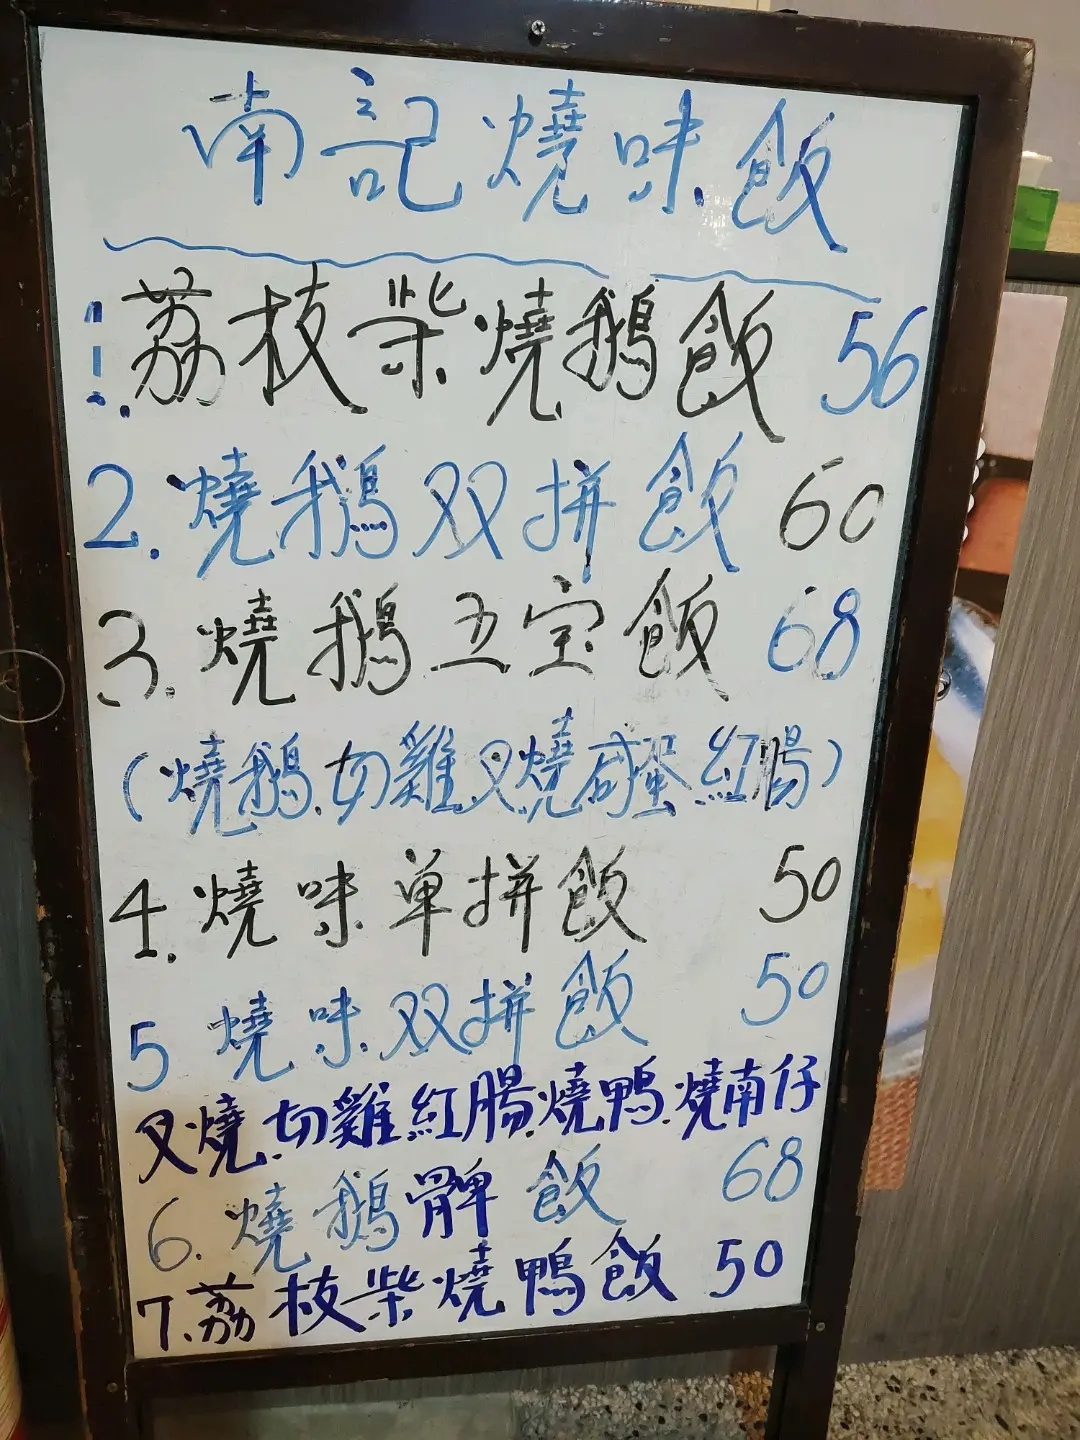 南記燒味飯
1.荔枝柴燒鵝飯 56
2.燒鵝双拼飯 60
3.燒鵝五宝飯 68
(燒鵝.切雞叉燒咸蛋紅腸)
4.燒味单拼飯 50
5 燒味双拼飯 50
叉燒.切雞紅腸.燒鴨.燒南仔
6.燒鵝髀飯 68
7.荔枝柴燒鴨飯 50